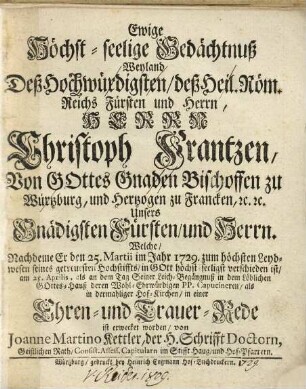 Ewige
Höchst-seelige Gedächtnuß
Weyland
Deß Hochwürdigsten/ deß Heil. Röm.
Reichs Fürsten und Herrn,
HERRN
Christoph Frantzen,
Von GOttes Gnaden Bischoffen zu
Würtzburg, und Hertzogen zu Francken, ꝛc. ꝛc.
Unsers
Gnädigsten Fürsten/ und Herrn.
Welche/
Nachdeme Er den 25. Martii im Jahr 1729. zum höchsten Leyd-
wesen seines getreuesten Hochstiffts/ in GOtt höchst-seeligst verschieden ist/
am 25. Aprilis, als an dem Tag Seiner Leich-Begängnuß in dem Löblichen
GOttes-Hauß deren Wohl-Ehrwürdigen PP. Capucineren/ als
in dermahliger Hof-Kirchen/ in einer
Ehren- und Trauer-Rede
ist erwecket worden/ von
Joanne Martino Kettler, der H. Schrifft Doctorn,
Geistlichen Rath/ Consist. Assess. Capitularn im Stifft Haug/ und Hof-Pfarrern.
Würtzburg/ getruckt bey Heinrich Engmann Hof-Buchdruckern. 1729